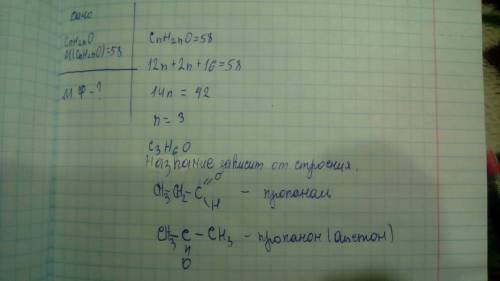 Дано
CnH2nO
M(CnH2nO)=58
М.Ф-?
CnH2nO=58
12n+2n+16=58
14n = 42
n = 3
C3H6O
Название зависит от строения.
O
CH3-CH2-C - пропаналь
H
CH3-C-CH3 - пропанон (ацетон)
O